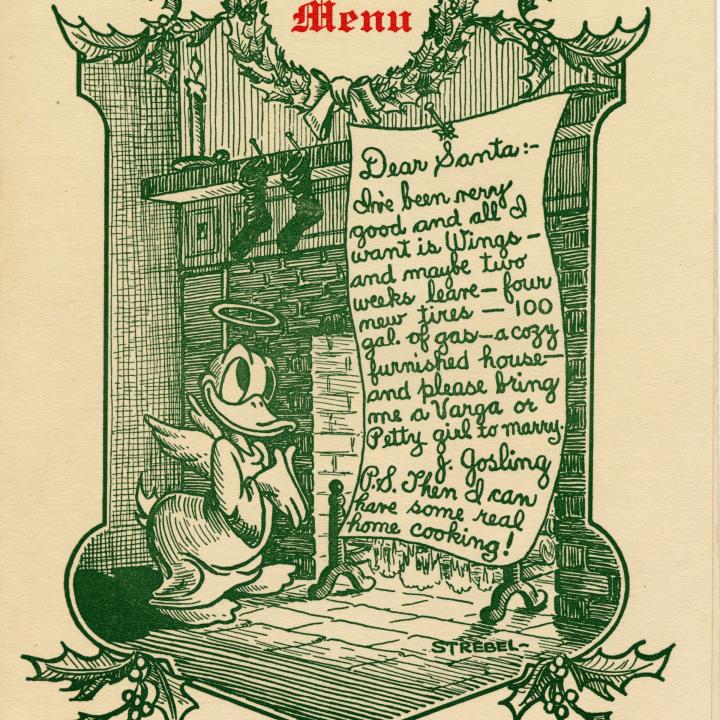 Menu
Dear Santa:-
I've been very
good and all I
want is Wings -
and maybe two
weeks leave - four
new tires - 100
gal. of gas - a cozy
furnished house -
and please bring
me a Varga or
Petty girl to marry.
J. Gosling
P.S. Then I can
have some real
home cooking!
STREBEL-